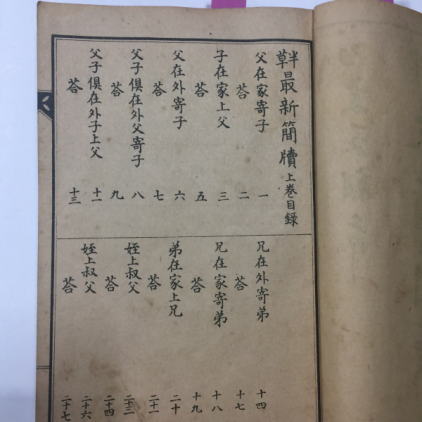 半草最新簡牘上卷目錄
父在家寄子 一
荅 二
子在家上父 三
荅 五
父在外寄子 六
荅 七
父子俱在外父寄子 八
荅 九
父子俱在外子上父 十一
荅 十三
兄在外寄弟 十四
荅 十七
兄在家寄弟 十八
荅 十九
弟在家上兄 二十
荅 二十一
姪上叔父 二十三
荅 二十四
姪上叔父 二十六
荅 二十七